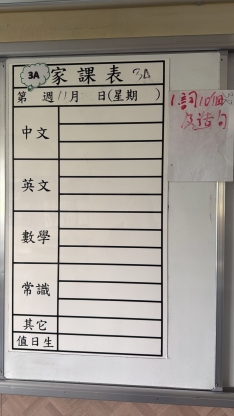 3A
家課表 3A
第 週 11月 日(星期 )
中文
英文
數學
常識
其它
值日生
1. 詞10個
及造句